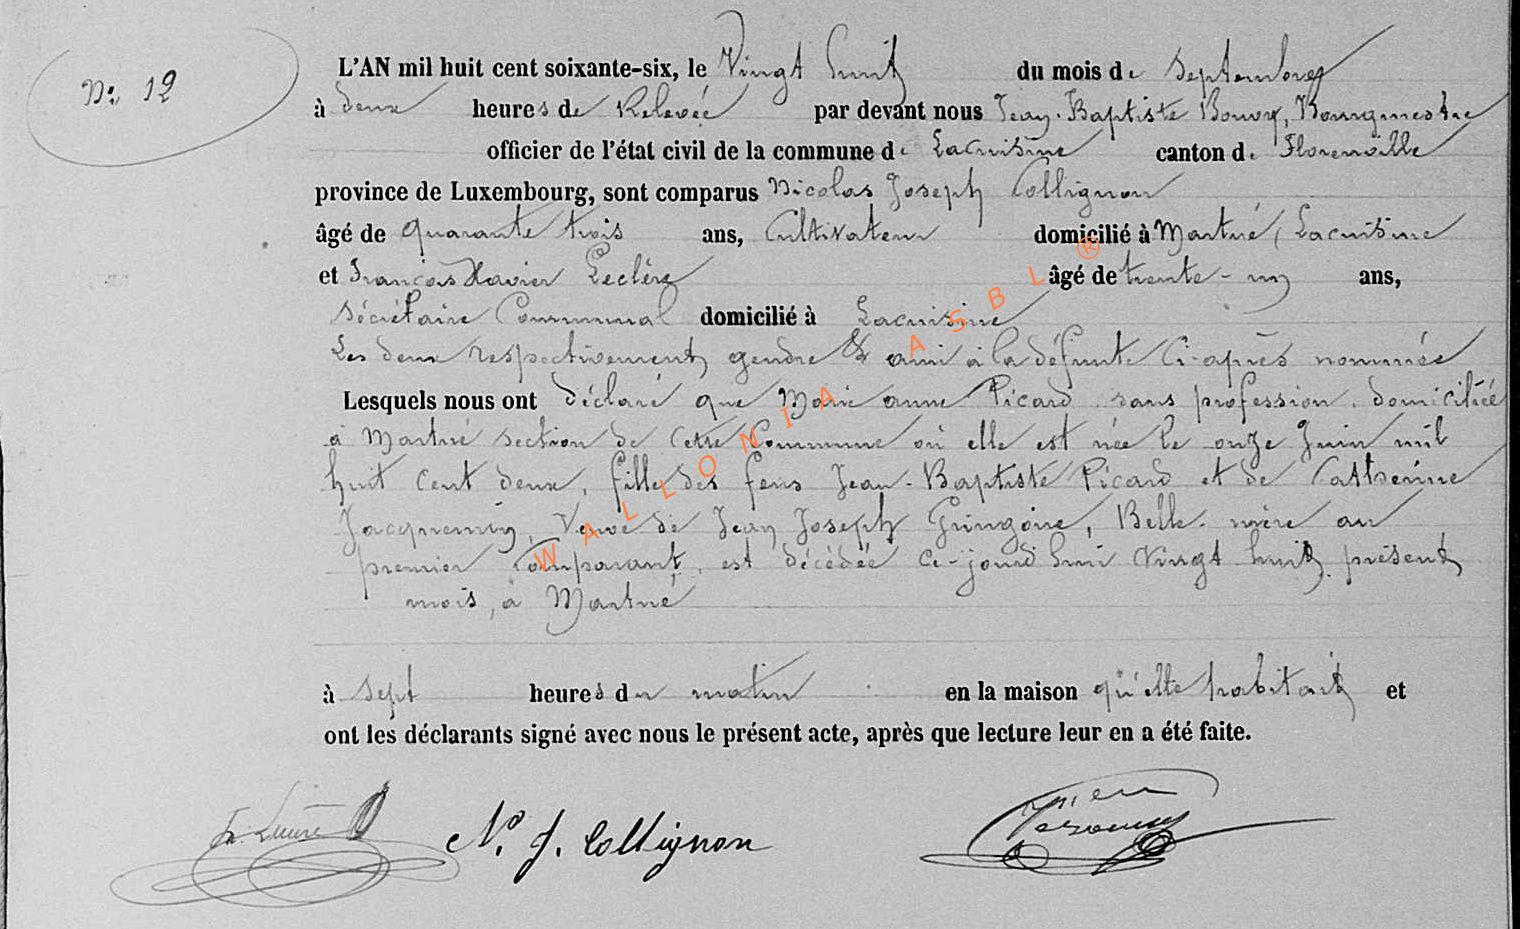 N°. 12
L'AN mil huit cent soixante-six, le Vingt huit du mois de Septembre
à deux heures de Relevée par devant nous Jean-Baptiste Bouvy, Bourgmestre
officier de l'état civil de la commune de Lacuisine canton de Florenville
province de Luxembourg, sont comparus Nicolas Joseph Collignon
âgé de quarante trois ans, Cultivateur domicilié à Martué (Lacuisine
et François Xavier Leclère âgé de trente-un ans,
Sécrétaire Communal domicilié à Lacuisine
Les deux respectivement gendre & ami à la défunte Ci-après nommée
Lesquels nous ont déclaré que Marie anne Picard sans profession, domiciliée
à Martué section de Cette Commune où elle est née le onze Juin mil
huit Cent deux, fille des feus Jean-Baptiste Picard et de Catherine
Jacquemin, Veuve de Jean Joseph Gringoire, Belle-mère au
premier Comparant, est décédée Ce-jourd'hui Vingt huit présent
mois, à Martué
à sept heures du matin en la maison qu'elle habitait et
ont les déclarants signé avec nous le présent acte, après que lecture leur en a été faite.
N. J. Collignon
WALLONIA ASBL ®